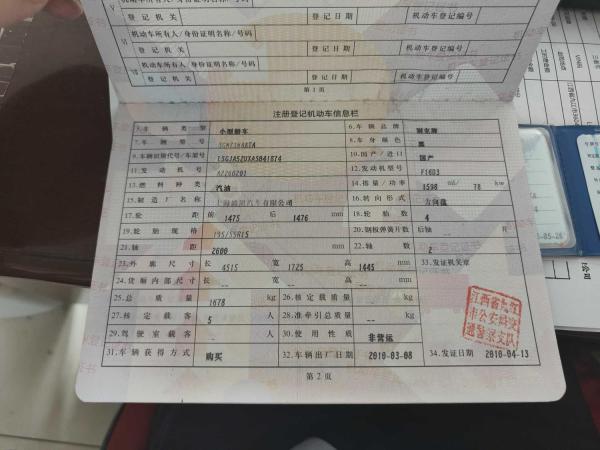 登记机关 登记日期 机动车登记编号
Ⅵ 机动车所有人/身份证明名称/号码
登记机关 登记日期 机动车登记编号
Ⅶ 机动车所有人/身份证明名称/号码
登记机关 登记日期 机动车登记编号
第1页
注册登记机动车信息栏
5.车辆类型 小型轿车 6.车辆品牌 别克牌
7.车辆型号 8.车身颜色 黑
9.车辆识别代号/车架号 LSGJA52UXAS041874 10.国产/进口 国产
11.发动机号 12.发动机型号 F16D3
13.燃料种类 汽油 14.排量/功率 1598 ml/ 78 kw
15.制造厂名称 上海通用汽车有限公司 16.转向形式 方向盘
17.轮距 前 1475 后 1476 mm 18.轮胎数 4
19.轮胎规格 195/55R15 20.钢板弹簧片数 后轴 -- 片
21.轴距 2600 mm 22.轴数 2
23.外廓尺寸 长 4515 宽 1725 高 1445 mm 33.发证机关章
24.货厢内部尺寸 长 -- 宽 -- 高 -- mm
25.总质量 1678 kg 26.核定载质量 -- kg
27.核定载客 5 人 28.准牵引总质量 -- kg
29.驾驶室载客 -- 人 30.使用性质 非营运
31.车辆获得方式 购买 32.车辆出厂日期 2010-03-08 34.发证日期 2010-04-13
第2页